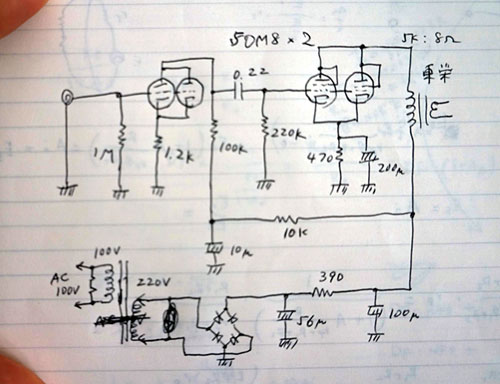 50M8 × 2
5K : 8Ω
東栄
0.22
1M
1.2K
100K
220K
470
200μ
10K
10μ
100V
AC
100V
220V
390
56μ
100μ